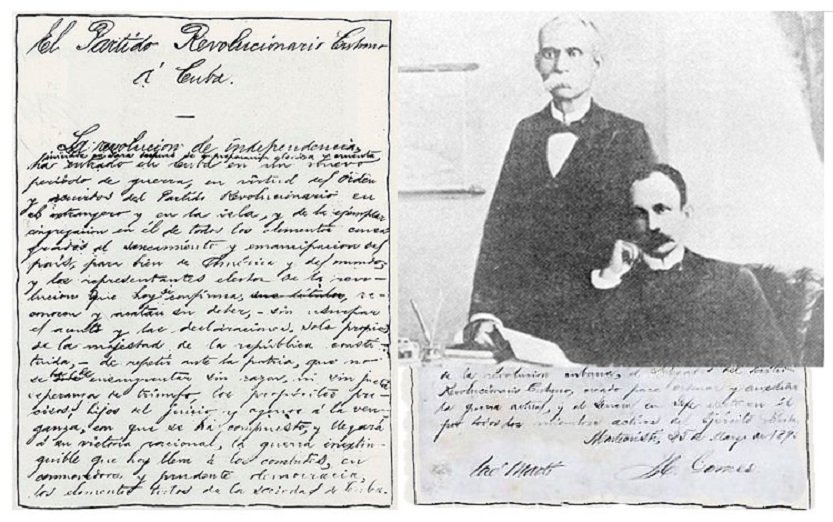 El Partido Revolucionario Cubano
á Cuba.
La revolucion de independencia,
iniciada en Yara despues de preparacion gloriosa y cruenta
ha entrado en Cuba en un nuevo
periodo de guerra, en virtud del orden
y acuerdos del Partido Revolucionario en
el extranjero y en la isla, y de la ejemplar
congregacion en él de todos los elementos consa
grados al saneamiento y emancipacion del
país, para bien de América y del mundo;
y los representantes electos de la revo-
lucion que hoy se confirma, re-
conocen y acatan su deber, - sin usurpar
el acento y las declaraciones solo propias
de la majestad de la república consti-
tuida, - de repetir ante la patria, que no
se ha de ensangrentar sin razon, ni sin justa
esperanza de triunfo, los propósitos pre-
cisos, hijos del juicio y ajenos á la ven-
ganza, con que se ha compuesto, y llegará
á su victoria racional, la guerra inextin-
guible que hoy lleva á los combates, en
conmovedora y prudente democracia,
los elementos todos de la sociedad de Cuba.
de la revolucion cubana, el Delegado del Partido
Revolucionario Cubano, creado para ordenar y auxiliar
la guerra actual, y el General en Jefe electo en él
por todos los miembros activos del Ejército
Montecristi, 25 de Marzo de 189
José Martí M. Gomez